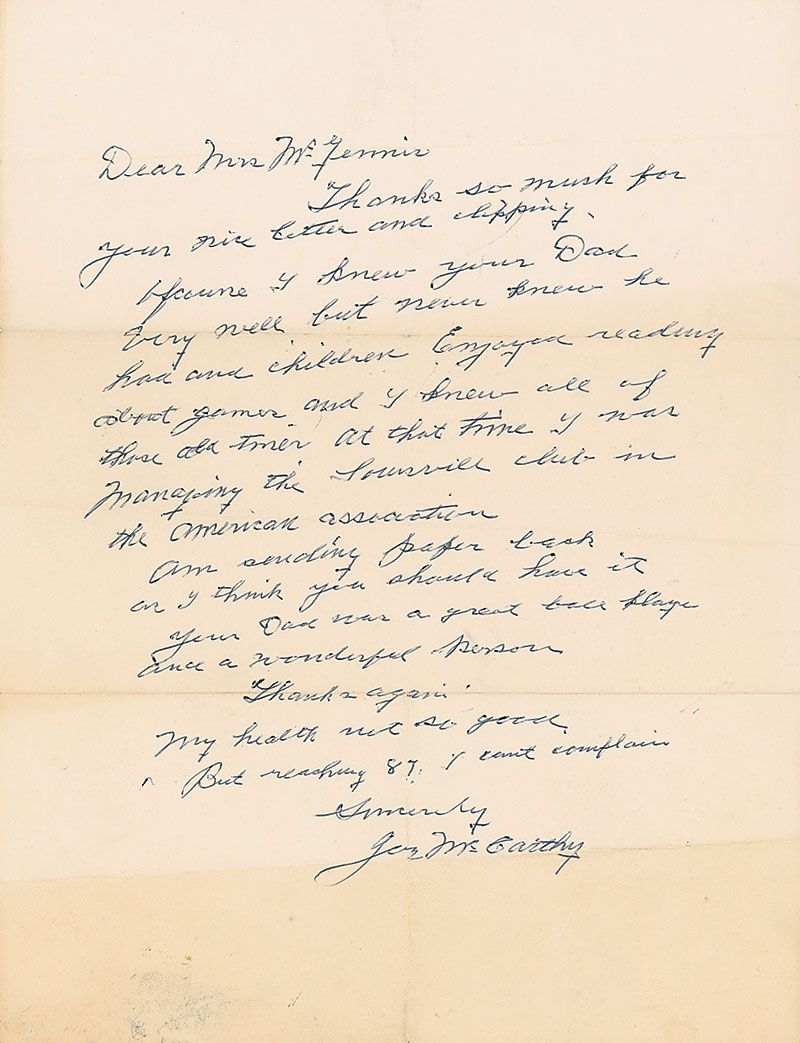 Dear Mrs Mc Gennis
Thanks so mush for
your nice letter and clipping.
Ofcourse I knew your Dad
Very well but never knew he
had and children Enjoyed reading
about games and I knew all of
those old timer At that time I was
Managing the Louisvill club in
the American association
Am sending paper back
as I think you should have it
your Dad was a great ball playe
and a wonderful person
"Thanks again"
My health not so good.
But reaching 87. I cant complain
Sincerely
Joe McCarthy